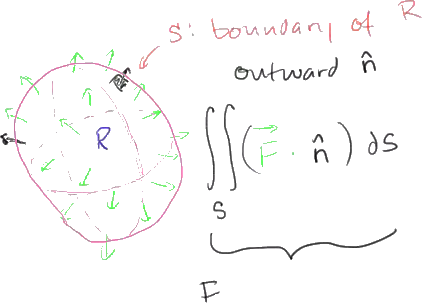 S: boundary of R
outward n̂
R
∬ (F⃗ · n̂) dS
S
F